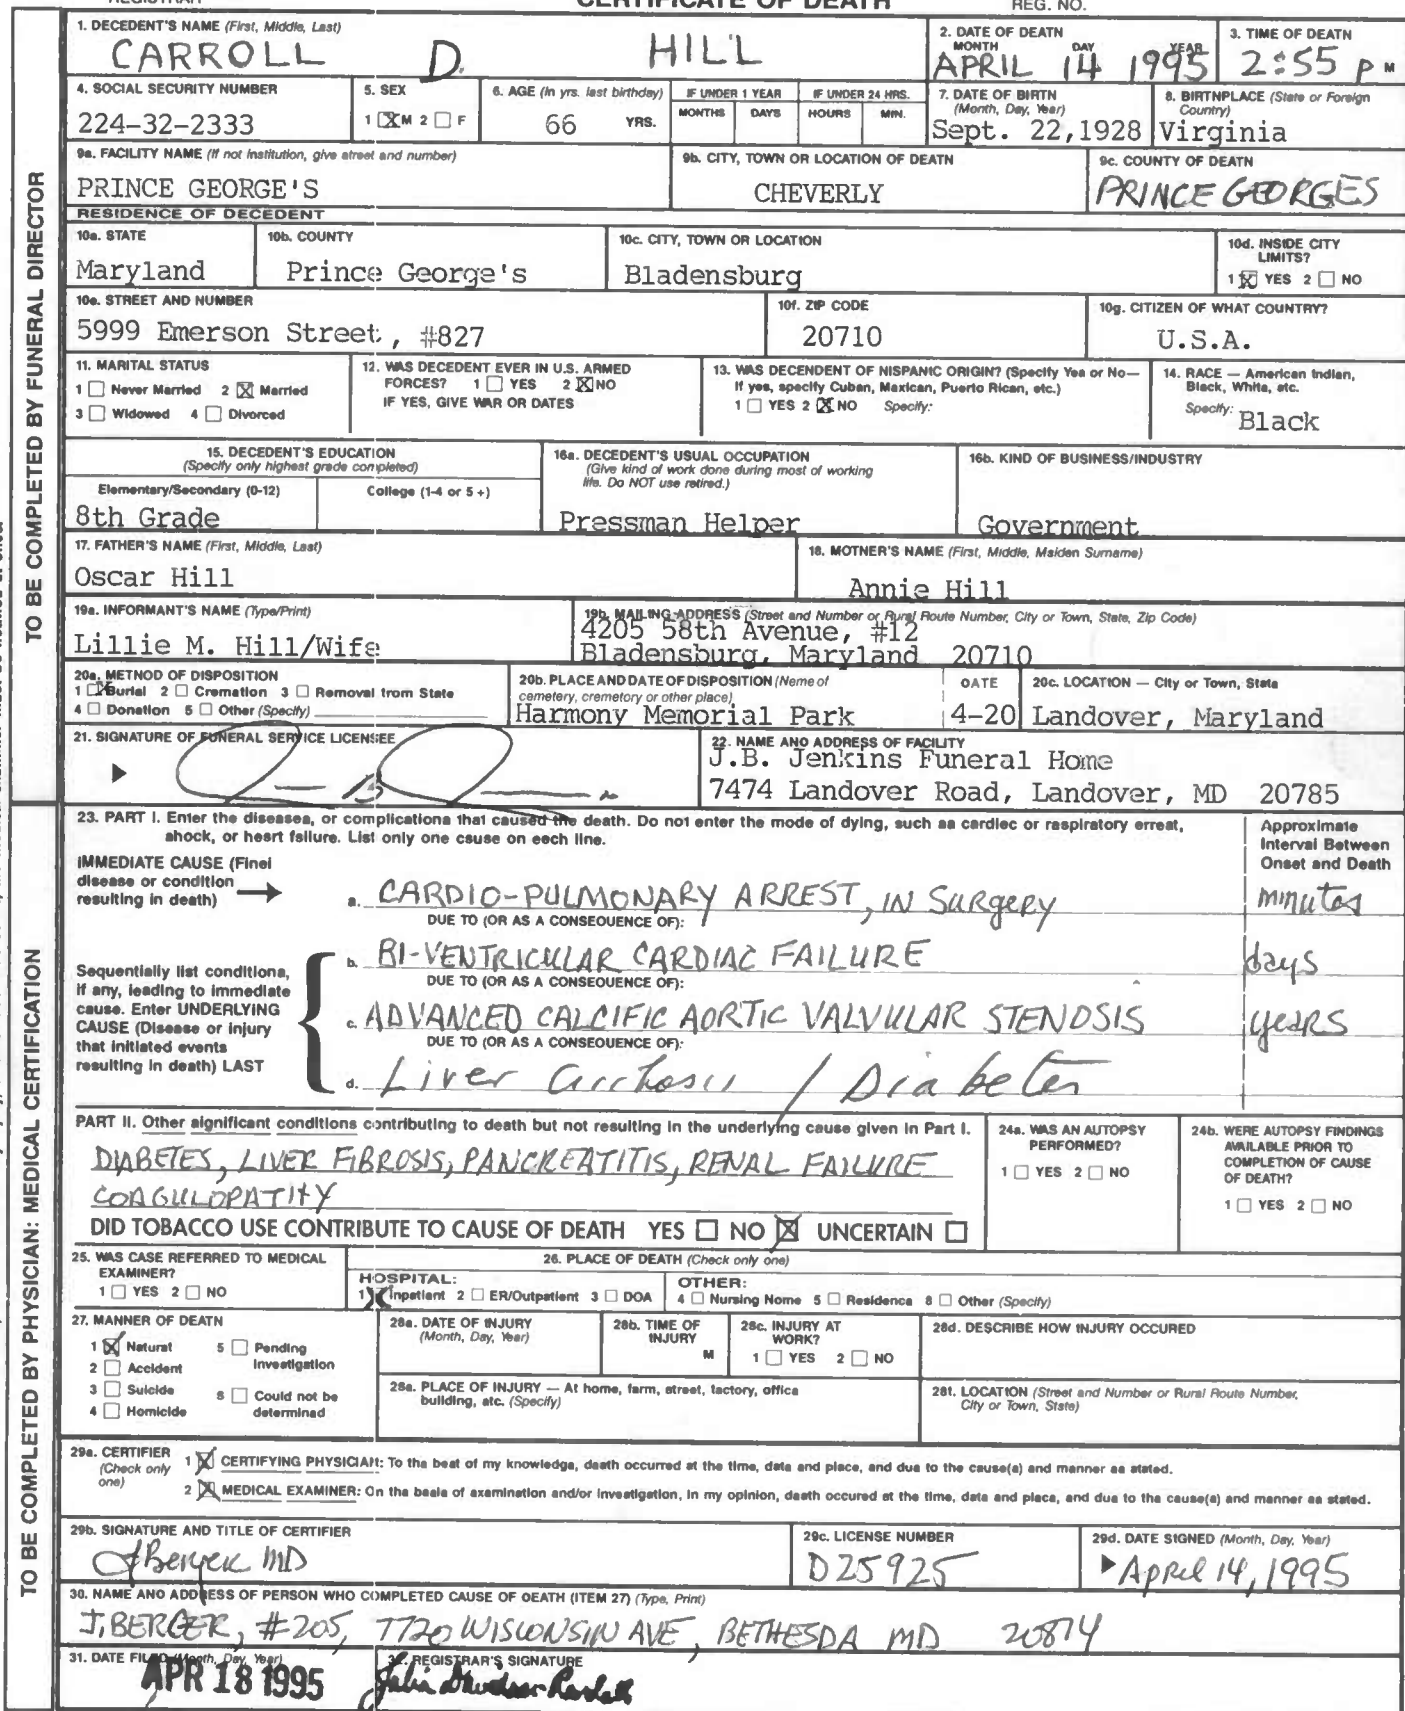 CERTIFICATE OF DEATH
REG. NO.
1. DECEDENT'S NAME (First, Middle, Last)
CARROLL D. HILL
2. DATE OF DEATH
MONTH DAY YEAR
APRIL 14 1995
3. TIME OF DEATH
2:55 P M
4. SOCIAL SECURITY NUMBER
224-32-2333
5. SEX
1 ☒ M 2 ☐ F
6. AGE (In yrs. last birthday)
66 YRS.
IF UNDER 1 YEAR
MONTHS DAYS
IF UNDER 24 HRS.
HOURS MIN.
7. DATE OF BIRTH
(Month, Day, Year)
Sept. 22,1928
8. BIRTHPLACE (State or Foreign
Country)
Virginia
9a. FACILITY NAME (If not institution, give street and number)
PRINCE GEORGE'S
9b. CITY, TOWN OR LOCATION OF DEATH
CHEVERLY
9c. COUNTY OF DEATH
PRINCE GEORGES
RESIDENCE OF DECEDENT
10a. STATE
Maryland
10b. COUNTY
Prince George's
10c. CITY, TOWN OR LOCATION
Bladensburg
10d. INSIDE CITY
LIMITS?
1 ☒ YES 2 ☐ NO
10e. STREET AND NUMBER
5999 Emerson Street, #827
10f. ZIP CODE
20710
10g. CITIZEN OF WHAT COUNTRY?
U.S.A.
11. MARITAL STATUS
1 ☐ Never Married 2 ☒ Married
3 ☐ Widowed 4 ☐ Divorced
12. WAS DECEDENT EVER IN U.S. ARMED
FORCES? 1 ☐ YES 2 ☒ NO
IF YES, GIVE WAR OR DATES
13. WAS DECENDENT OF NISPANIC ORIGIN? (Specify Yes or No—
If yes, specify Cuban, Mexican, Puerto Rican, etc.)
1 ☐ YES 2 ☒ NO Specify:
14. RACE — American Indian,
Black, White, etc.
Specify: Black
15. DECEDENT'S EDUCATION
(Specify only highest grade completed)
Elementary/Secondary (0-12) College (1-4 or 5+)
8th Grade
16a. DECEDENT'S USUAL OCCUPATION
(Give kind of work done during most of working
life. Do NOT use retired.)
Pressman Helper
16b. KIND OF BUSINESS/INDUSTRY
Government
17. FATHER'S NAME (First, Middle, Last)
Oscar Hill
18. MOTHER'S NAME (First, Middle, Maiden Surname)
Annie Hill
19a. INFORMANT'S NAME (Type/Print)
Lillie M. Hill/Wife
19b. MAILING ADDRESS (Street and Number or Rural Route Number, City or Town, State, Zip Code)
4205 58th Avenue, #12
Bladensburg, Maryland 20710
20a. METNOD OF DISPOSITION
1 ☒ Burial 2 ☐ Cremation 3 ☐ Removal from State
4 ☐ Donation 5 ☐ Other (Specify)
20b. PLACE AND DATE OF DISPOSITION (Neme of
cemetery, cremetory or other place)
Harmony Memorial Park
OATE
4-20
20c. LOCATION — City or Town, State
Landover, Maryland
21. SIGNATURE OF FUNERAL SERVICE LICENSEE
22. NAME ANO ADDRESS OF FACILITY
J.B. Jenkins Funeral Home
7474 Landover Road, Landover, MD 20785
TO BE COMPLETED BY FUNERAL DIRECTOR
23. PART I. Enter the diseases, or complications that caused the death. Do not enter the mode of dying, such as cardiec or respiratory erreat,
ahock, or heart failure. List only one csuse on eech line.
Approximate
Interval Between
Onset and Death
IMMEDIATE CAUSE (Finel
disease or condition
resulting in death)
a. CARDIO-PULMONARY ARREST, IN SURGERY minutes
DUE TO (OR AS A CONSEOUENCE OF):
b. BI-VENTRICULAR CARDIAC FAILURE days
DUE TO (OR AS A CONSEOUENCE OF):
Sequentially list conditiona,
if any, leading to immediate
cause. Enter UNDERLYING
CAUSE (Disease or injury
that initiated events
resulting in death) LAST
c. ADVANCED CALCIFIC AORTIC VALVULAR STENOSIS years
DUE TO (OR AS A CONSEOUENCE OF):
d. Liver Cirrhosis / Diabetes
PART II. Other aignificant conditions contributing to death but not resulting in the underlying cause given in Part I.
DIABETES, LIVER FIBROSIS, PANCREATITIS, RENAL FAILURE
COAGULOPATHY
DID TOBACCO USE CONTRIBUTE TO CAUSE OF DEATH YES ☐ NO ☒ UNCERTAIN ☐
24a. WAS AN AUTOPSY
PERFORMED?
1 ☐ YES 2 ☐ NO
24b. WERE AUTOPSY FINDINGS
AVAILABLE PRIOR TO
COMPLETION OF CAUSE
OF DEATH?
1 ☐ YES 2 ☐ NO
25. WAS CASE REFERRED TO MEDICAL
EXAMINER?
1 ☐ YES 2 ☐ NO
26. PLACE OF DEATH (Check only one)
HOSPITAL:
1 ☒ Inpatient 2 ☐ ER/Outpatient 3 ☐ DOA
OTHER:
4 ☐ Nursing Nome 5 ☐ Residence 8 ☐ Other (Specify)
27. MANNER OF DEATH
1 ☒ Natural 5 ☐ Pending
Investigation
2 ☐ Accident
3 ☐ Suicide 8 ☐ Could not be
determined
4 ☐ Homicide
28a. DATE OF INJURY
(Month, Day, Year)
28b. TIME OF
INJURY
M
28c. INJURY AT
WORK?
1 ☐ YES 2 ☐ NO
28d. DESCRIBE HOW INJURY OCCURED
28a. PLACE OF INJURY — At home, farm, street, factory, office
building, atc. (Specify)
281. LOCATION (Street and Number or Rural Route Number,
City or Town, State)
29a. CERTIFIER
(Check only
one)
1 ☒ CERTIFYING PHYSICIAN: To the beat of my knowledge, daath occurred at the time, data and place, and due to the cause(a) and manner aa atated.
2 ☒ MEDICAL EXAMINER: On the baaia of axamination and/or invaatigation, in my opinion, daath occured at the time, data and placa, and due to the cause(a) and manner aa stated.
29b. SIGNATURE AND TITLE OF CERTIFIER
J Berger MD
29c. LICENSE NUMBER
D25925
29d. DATE SIGNED (Month, Day, Year)
April 14, 1995
30. NAME ANO ADDRESS OF PERSON WHO COMPLETED CAUSE OF OEATH (ITEM 27) (Type, Print)
J. BERGER, #205, 7720 WISCONSIN AVE, BETHESDA MD 20814
31. DATE FILED (Month, Day, Year)
APR 18 1995
32. REGISTRAR'S SIGNATURE
TO BE COMPLETED BY PHYSICIAN: MEDICAL CERTIFICATION